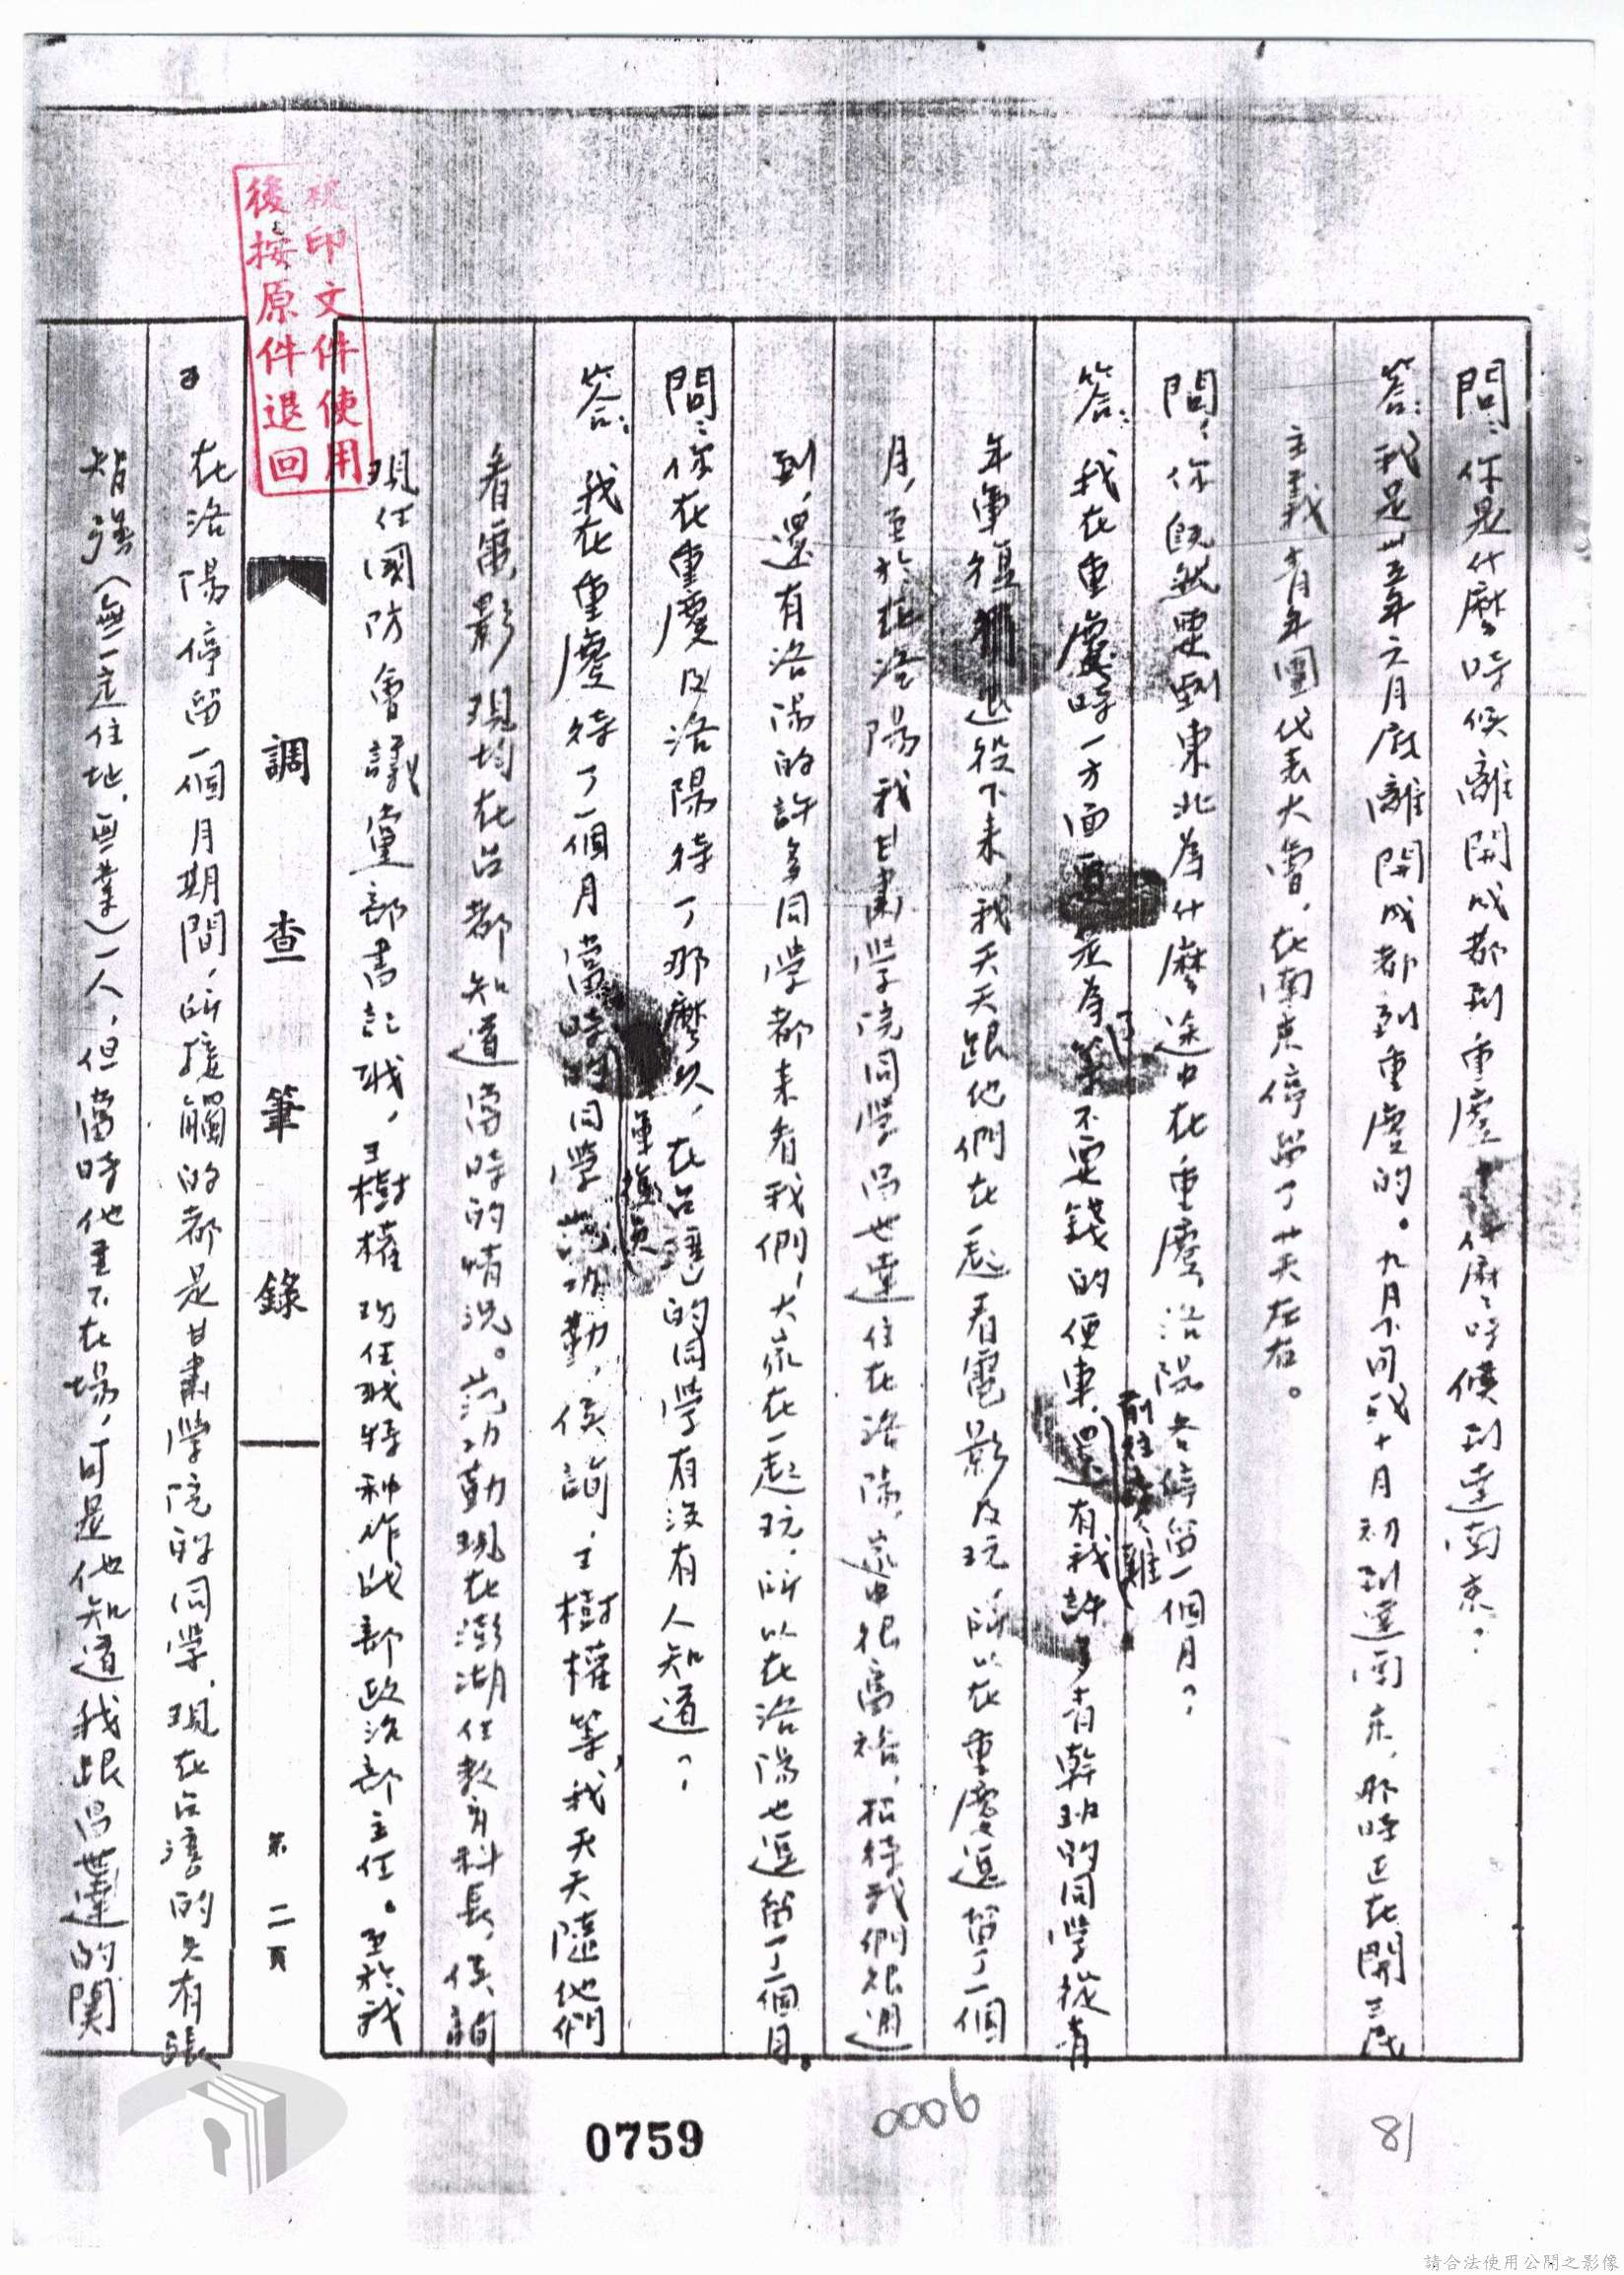 問：你是什麼時候離開成都到重慶，什麼時候到達南京？
答：我是卅五年六月底離開成都到重慶的。九月下旬或十月初到達南京，那時正在開三民
主義青年團代表大會，在南京停留了廿天左右。
問：你既然要到東北為什麼途中在重慶，洛陽各停留一個月？
答：我在重慶時一方面是為了等不要錢的便車，還有我許多青幹班的同學從青
前往
年軍復 退役下來，我天天跟他們在一起看電影及玩，所以在重慶逗留了一個
月，至於在洛陽我甘肅學院同學呂世達住在洛陽，家中很富裕，招待我們很週
到，還有洛陽的許多同學都來看我們，大家在一起玩，所以在洛陽也逗留了一個月。
問：你在重慶及洛陽待了那麼久，在台灣的同學有沒有人知道？
答：我在重慶待了一個月當時的同學范功勤，侯詢，王樹權等，我天天隨他們
軍復員
看電影現均在台都知道當時的情況。范功勤現在澎湖任教育科長，侯詢
現任國防會議黨部書記職，王樹權現任職特種作戰部政治部主任。至於我
調查筆錄
第二頁
在洛陽停留一個月期間，所接觸的都是甘肅學院的同學，現在台灣的只有張
智強（無一定住地，無業）一人，但當時他並不在場，可是他知道我跟呂世達的關
複印文件使用
後按原件退回
0759
0006
81
請合法使用公開之影像